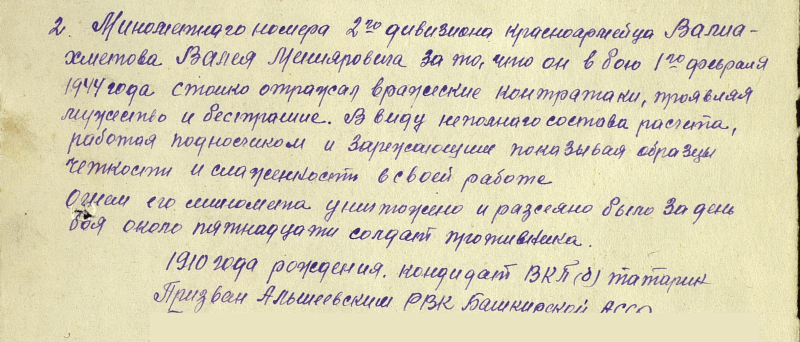 2. Минометнаго номера 2го дивизиона красноармейца Валиа-
хметова Валея Менияровича за то, что он в бою 1го февраля
1944 года стойко отражал вражеские контратаки, проявляя
мужество и бестрашие. В виду неполнаго состава расчета,
работая подносчиком и заряжающим показывая образцы
четкости и слаженности в своей работе
Огнем его миномета уничтожено и разсеяно было за день
боя около пятнадцати солдат противника.
1910 года рождения. кандидат ВКП(б) татарин
Призван Альшеевским РВК Башкирской АССР